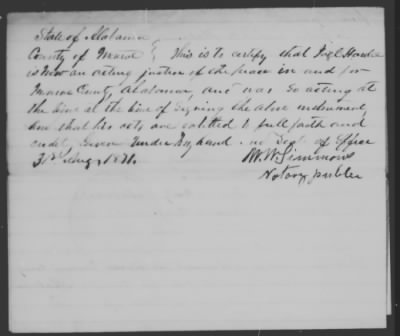 State of Alabama
County of Monroe } This is to certify that Joel Hardee
is now an acting justice of the peace in and for
Monroe County Alabama, and was so acting at
the time at the time of signing the above instrument,
and that his acts are entitled to full faith and
credit, Given under my hand. no Seal of Office
31st Aug, 1871.
W. W. Simmons
Notary public